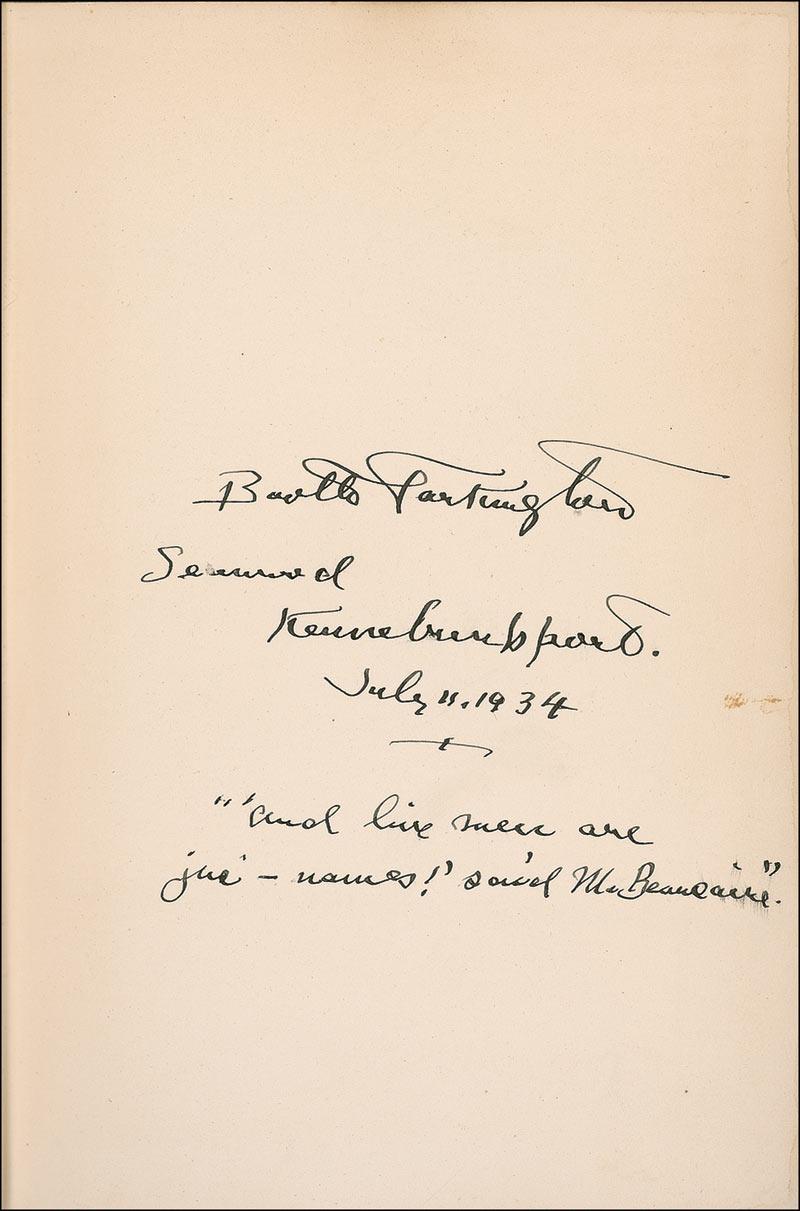 Booth Tarkington
Seawood
Kennebunkport.
July 11. 1934
"'and live men are
jus' – names!' said M. Beaucaire".